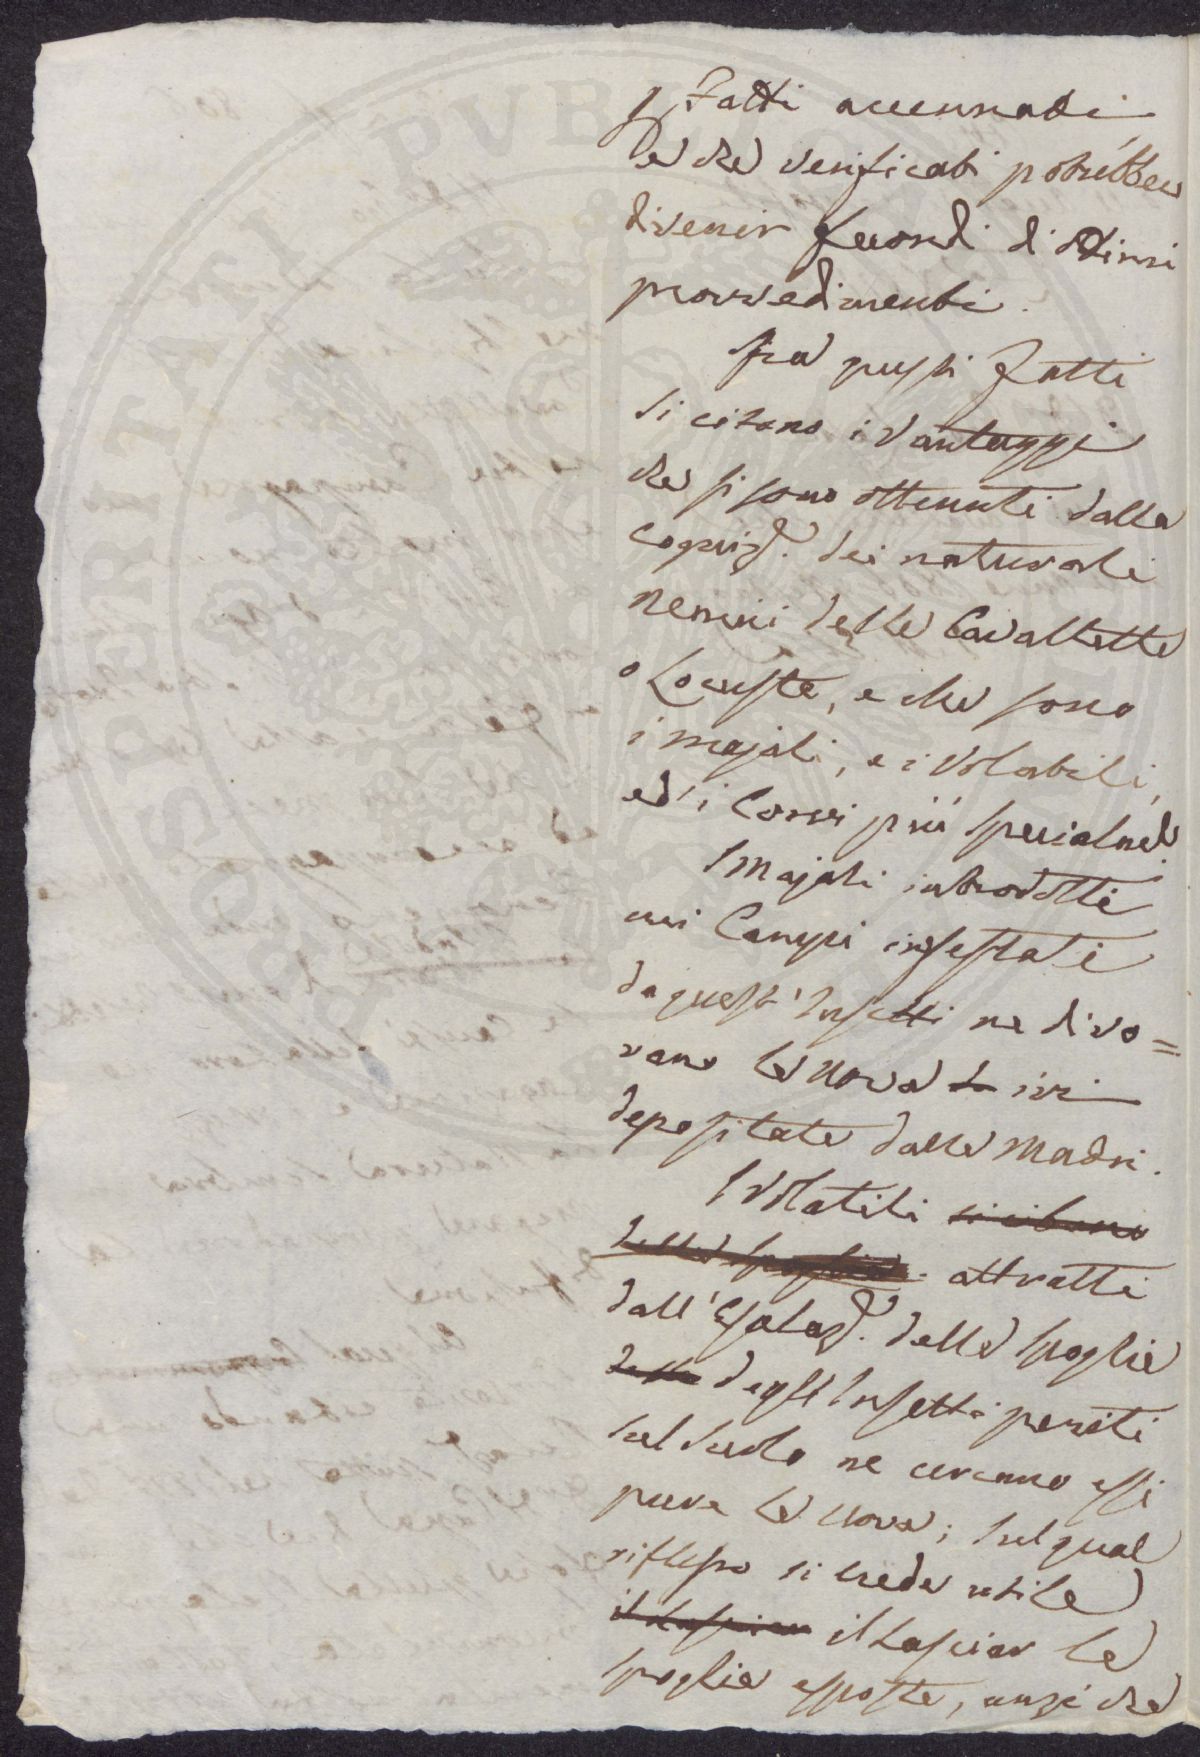 i Fatti accennati
e che verificati potrebbero
divenir fecondi di ottimi
provvedimenti.
Fra questi fatti
si citano i vantaggi
che si sono ottenuti dalla
cogniz.e dei naturali
nemici delle Cavallette
o Locuste, e che sono
i majali, e i volatili,
ed i Corvi più specialm.e
I Majali introdotti
nei Campi infestati
da quest'Insetti ne divo=
rano le uova ivi
depositate dalle Madri.
I Volatili si cibano
delle spoglie attratti
dall'Esalaz.e delle spoglie
delle degl'Insetti periti
sul suolo ne cercano essi
pure le uova; sul qual
riflesso si crede utile
il lasciar il lasciar le
spoglie esposte, anzi che